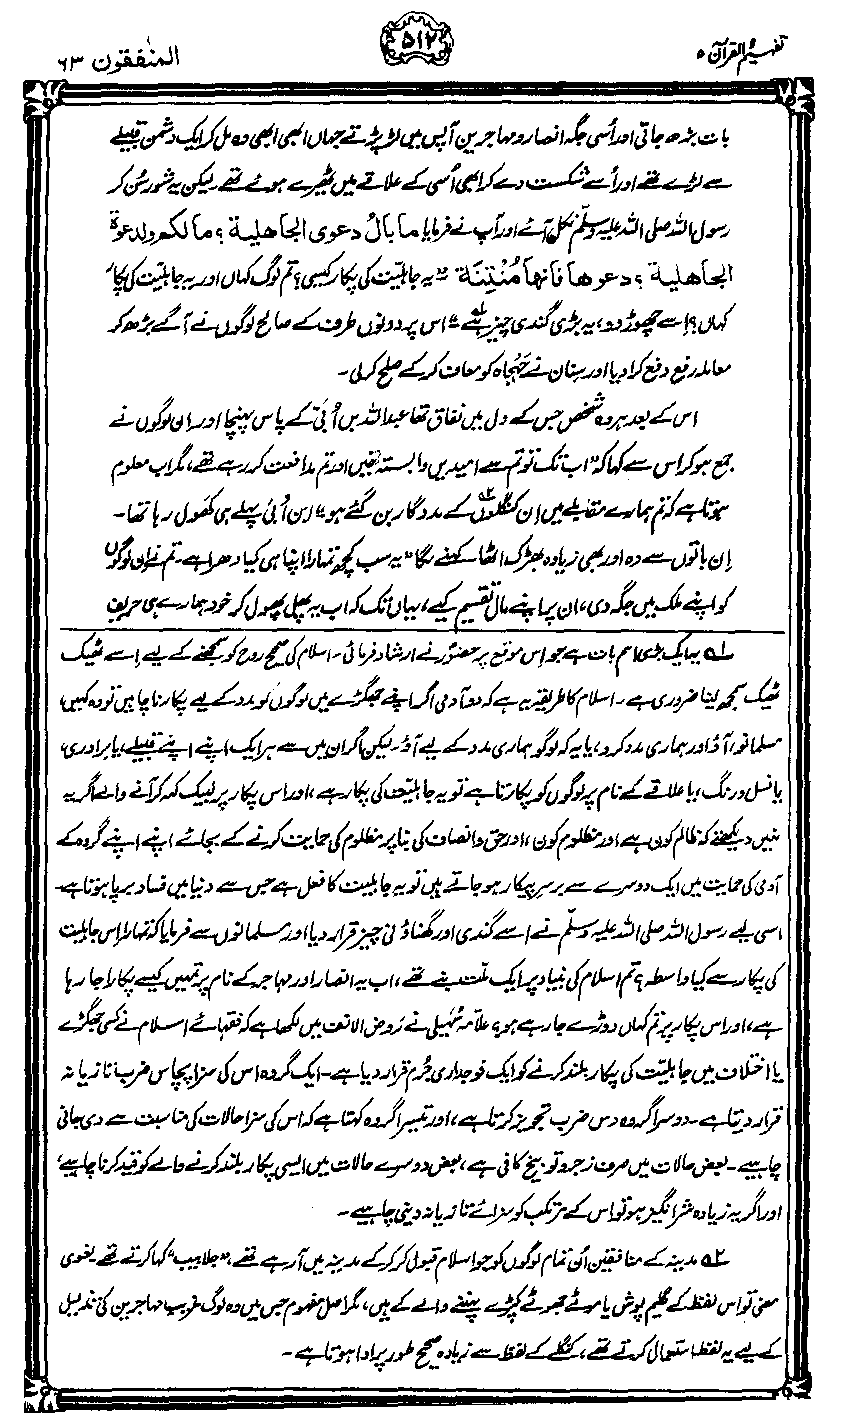 تفہیم القرآن ۵
۵۱۲
المنٰفقون ۶۳
بات بڑھ جاتی اور اُسی جگہ انصار و مہاجرین آپس میں لڑ پڑتے جہاں ابھی ابھی وہ مل کر ایک دشمن قبیلے
سے لڑے تھے اور اُسے شکست دے کر ابھی اُسی کے علاقے میں ٹھیرے ہوئے تھے۔ لیکن یہ شور سُن کر
رسول اللہ صلی اللہ علیہ وسلّم نکل آئے اور آپ نے فرمایا ما بالُ دعوی الجاھلیة ؟ ما لکم ولدعوة
الجاھلیة ؟ دعوھا فانھا مُنْتِنَة "یہ جاہلیّت کی پکار کیسی؟ تم لوگ کہاں اور یہ جاہلیّت کی پکار
کہاں؟ اسے چھوڑ دو، یہ بڑی گندی چیز ہے۱؎" اس پر دونوں طرف کے صالح لوگوں نے آگے بڑھ کر
معاملہ رفع دفع کرا دیا اور سِنان نے جَہْجاہ کو معاف کر کے صلح کر لی۔
اس کے بعد ہر وہ شخص جس کے دل میں نفاق تھا عبداللہ بن اُبَیّ کے پاس پہنچا اور ان لوگوں نے
جمع ہو کر اس سے کہا کہ "اب تک تو تم سے امیدیں وابستہ تھیں اور تم مدافعت کر رہے تھے، مگر اب معلوم
ہوتا ہے کہ تم ہمارے مقابلے میں اِن کنگلوں۲؎ کے مددگار بن گئے ہو" ابن اُبیّ پہلے ہی کَھول رہا تھا۔
اِن باتوں سے وہ اور بھی زیادہ بھڑک اُٹھا کہنے لگا "یہ سب کچھ تمہارا اپنا ہی کیا دھرا ہے۔ تم نے اِن لوگوں
کو اپنے ملک میں جگہ دی، ان پر اپنے مال تقسیم کیے، یہاں تک کہ اب یہ پھل پھول کر خود ہمارے ہی حریف
۱؎ یہ ایک بڑی اہم بات ہے جو اس موقع پر حضورؐ نے ارشاد فرمائی۔ اسلام کی صحیح روح کو سمجھنے کے لیے اسے ٹھیک
ٹھیک سمجھ لینا ضروری ہے۔ اسلام کا طریقہ یہ ہے کہ دو آدمی اگر اپنے جھگڑے میں لوگوں کو مدد کے لیے پکارنا چاہیں تو وہ کہیں
مسلمانو، آؤ اور ہماری مدد کرو، یا یہ کہ لوگو ہماری مدد کے لیے آؤ۔ لیکن اگر ان میں سے ہر ایک اپنے اپنے قبیلے، یا برادری،
یا نسل و رنگ، یا علاقے کے نام پر لوگوں کو پکارتا ہے تو یہ جاہلیّت کی پکار ہے، اور اس پکار پر لبیک کہہ کر آنے والے اگر یہ
نہیں دیکھتے کہ ظالم کون ہے اور مظلوم کون، اور حق و انصاف کی بنا پر مظلوم کی حمایت کرنے کے بجائے اپنے اپنے گروہ کے
آدمی کی حمایت میں ایک دوسرے سے برسرپیکار ہو جاتے ہیں تو یہ جاہلیت کا فعل ہے جس سے دنیا میں فساد برپا ہوتا ہے۔
اسی لیے رسول اللہ صلی اللہ علیہ وسلّم نے اسے گندی اور گھناؤنی چیز قرار دیا اور مسلمانوں سے فرمایا کہ تمہارا اِس جاہلیت
کی پکار سے کیا واسطہ؟ تم اسلام کی بنیاد پر ایک ملّت بنے تھے، اب یہ انصار اور مہاجر کے نام پر تمہیں کیسے پکارا جا رہا
ہے، اور اس پکار پر تم کہاں دوڑے جا رہے ہو؟ علامہ سُہَیلی نے رَوض الانف میں لکھا ہے کہ فقہائے اسلام نے کسی جھگڑے
یا اختلاف میں جاہلیّت کی پکار بلند کرنے کو ایک فوجداری جُرم قرار دیا ہے۔ ایک گروہ اس کی سزا پچاس ضرب تازیانہ
قرار دیتا ہے۔ دوسرا گروہ دس ضرب تجویز کرتا ہے، اور تیسرا گروہ کہتا ہے کہ اس کی سزا حالات کی مناسبت سے دی جانی
چاہیے۔ بعض حالات میں صرف زجر و توبیخ کافی ہے، بعض دوسرے حالات میں ایسی پکار بلند کرنے والے کو قید کرنا چاہیے،
اور اگر یہ زیادہ شر انگیز ہو تو اس کے مرتکب کو سزائے تازیانہ دینی چاہیے۔
۲؎ مدینہ کے منافقین اُن تمام لوگوں کو جو اسلام قبول کر کر کے مدینہ میں آ رہے تھے، "جلابیب" کہا کرتے تھے۔ لغوی
معنی تو اس لفظ کے گلیم پوش یا موٹے جھوٹے کپڑے پہننے والے کے ہیں، مگر اصل مفہوم جس میں وہ لوگ غریب مہاجرین کی تذلیل
کے لیے یہ لفظ استعمال کرتے تھے، کنگلے کے لفظ سے زیادہ صحیح طور پر ادا ہوتا ہے۔